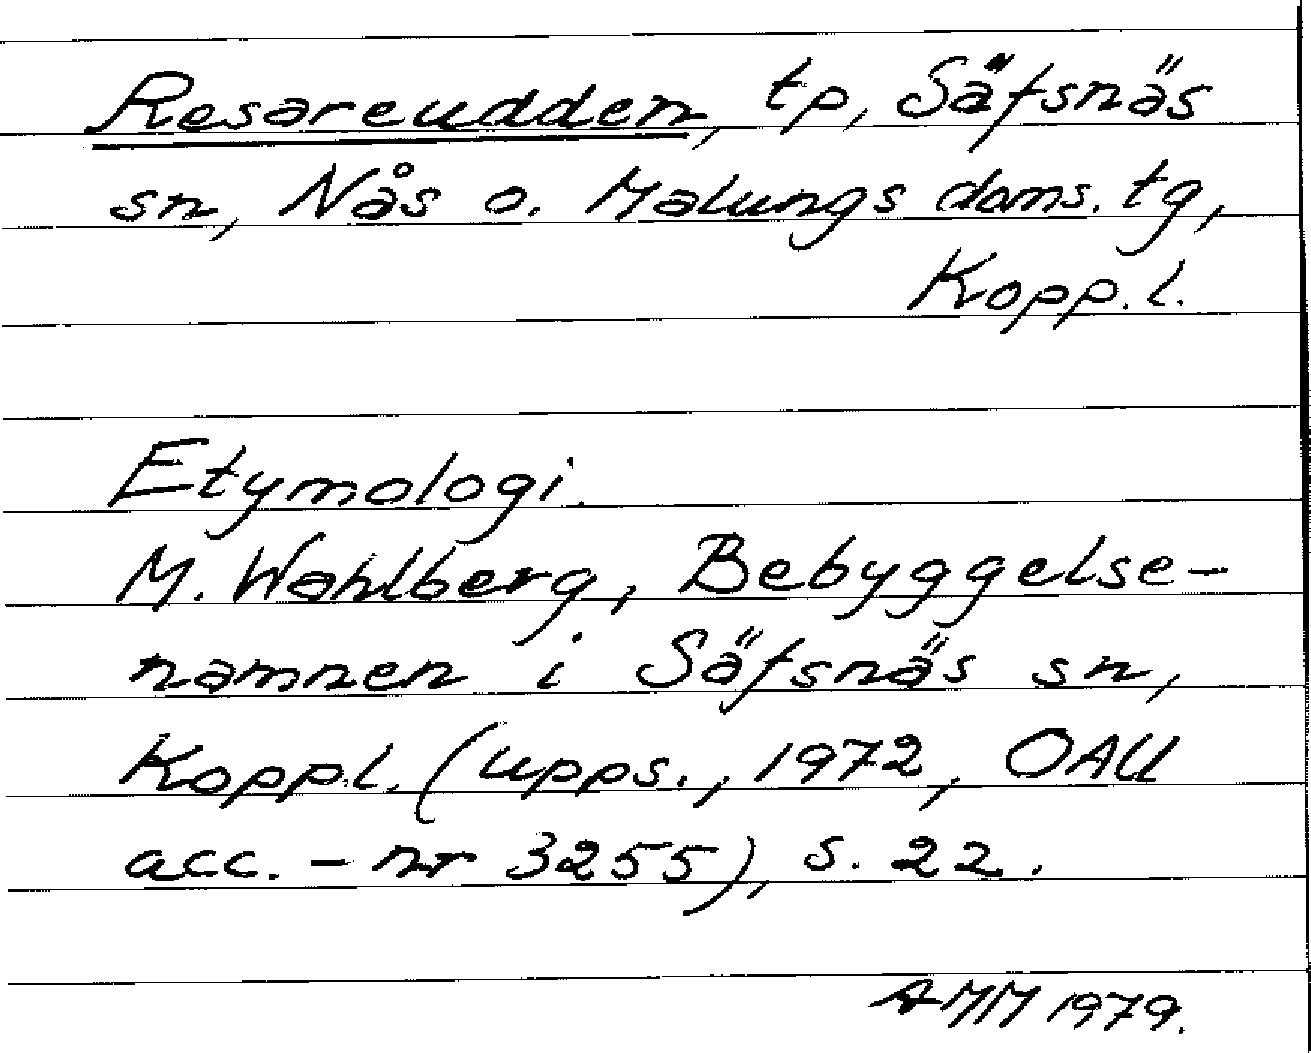 Resareudden, tp, Säfsnäs
sn, Nås o. Malungs doms. tg,
Kopp. l.
Etymologi.
M. Wahlberg, Bebyggelse-
namnen i Säfsnäs sn,
Kopp.l. (Upps., 1972, OAU
acc. - nr 3255), s. 22.
AMM 1979.